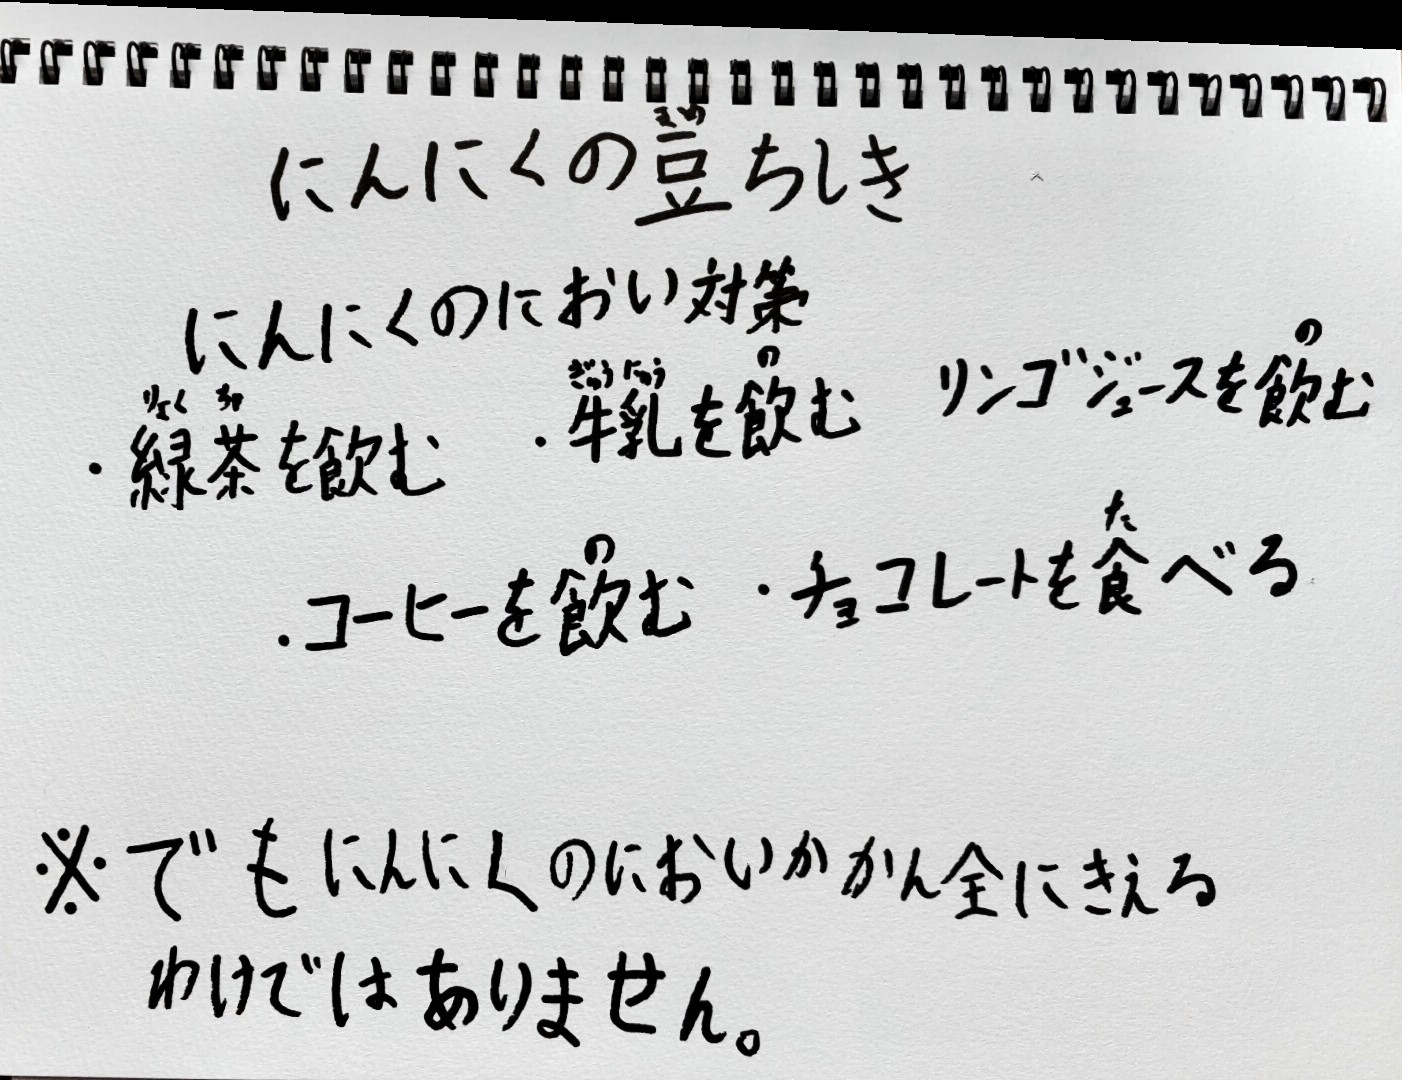 にんにくの豆ちしき
まめ
にんにくのにおい対策
・緑茶を飲む
りょく ちゃ
・牛乳を飲む
ぎゅうにゅう の
リンゴジュースを飲む
の
・コーヒーを飲む
の
・チョコレートを食べる
た
※でもにんにくのにおいかかん全にきえる
わけではありません。